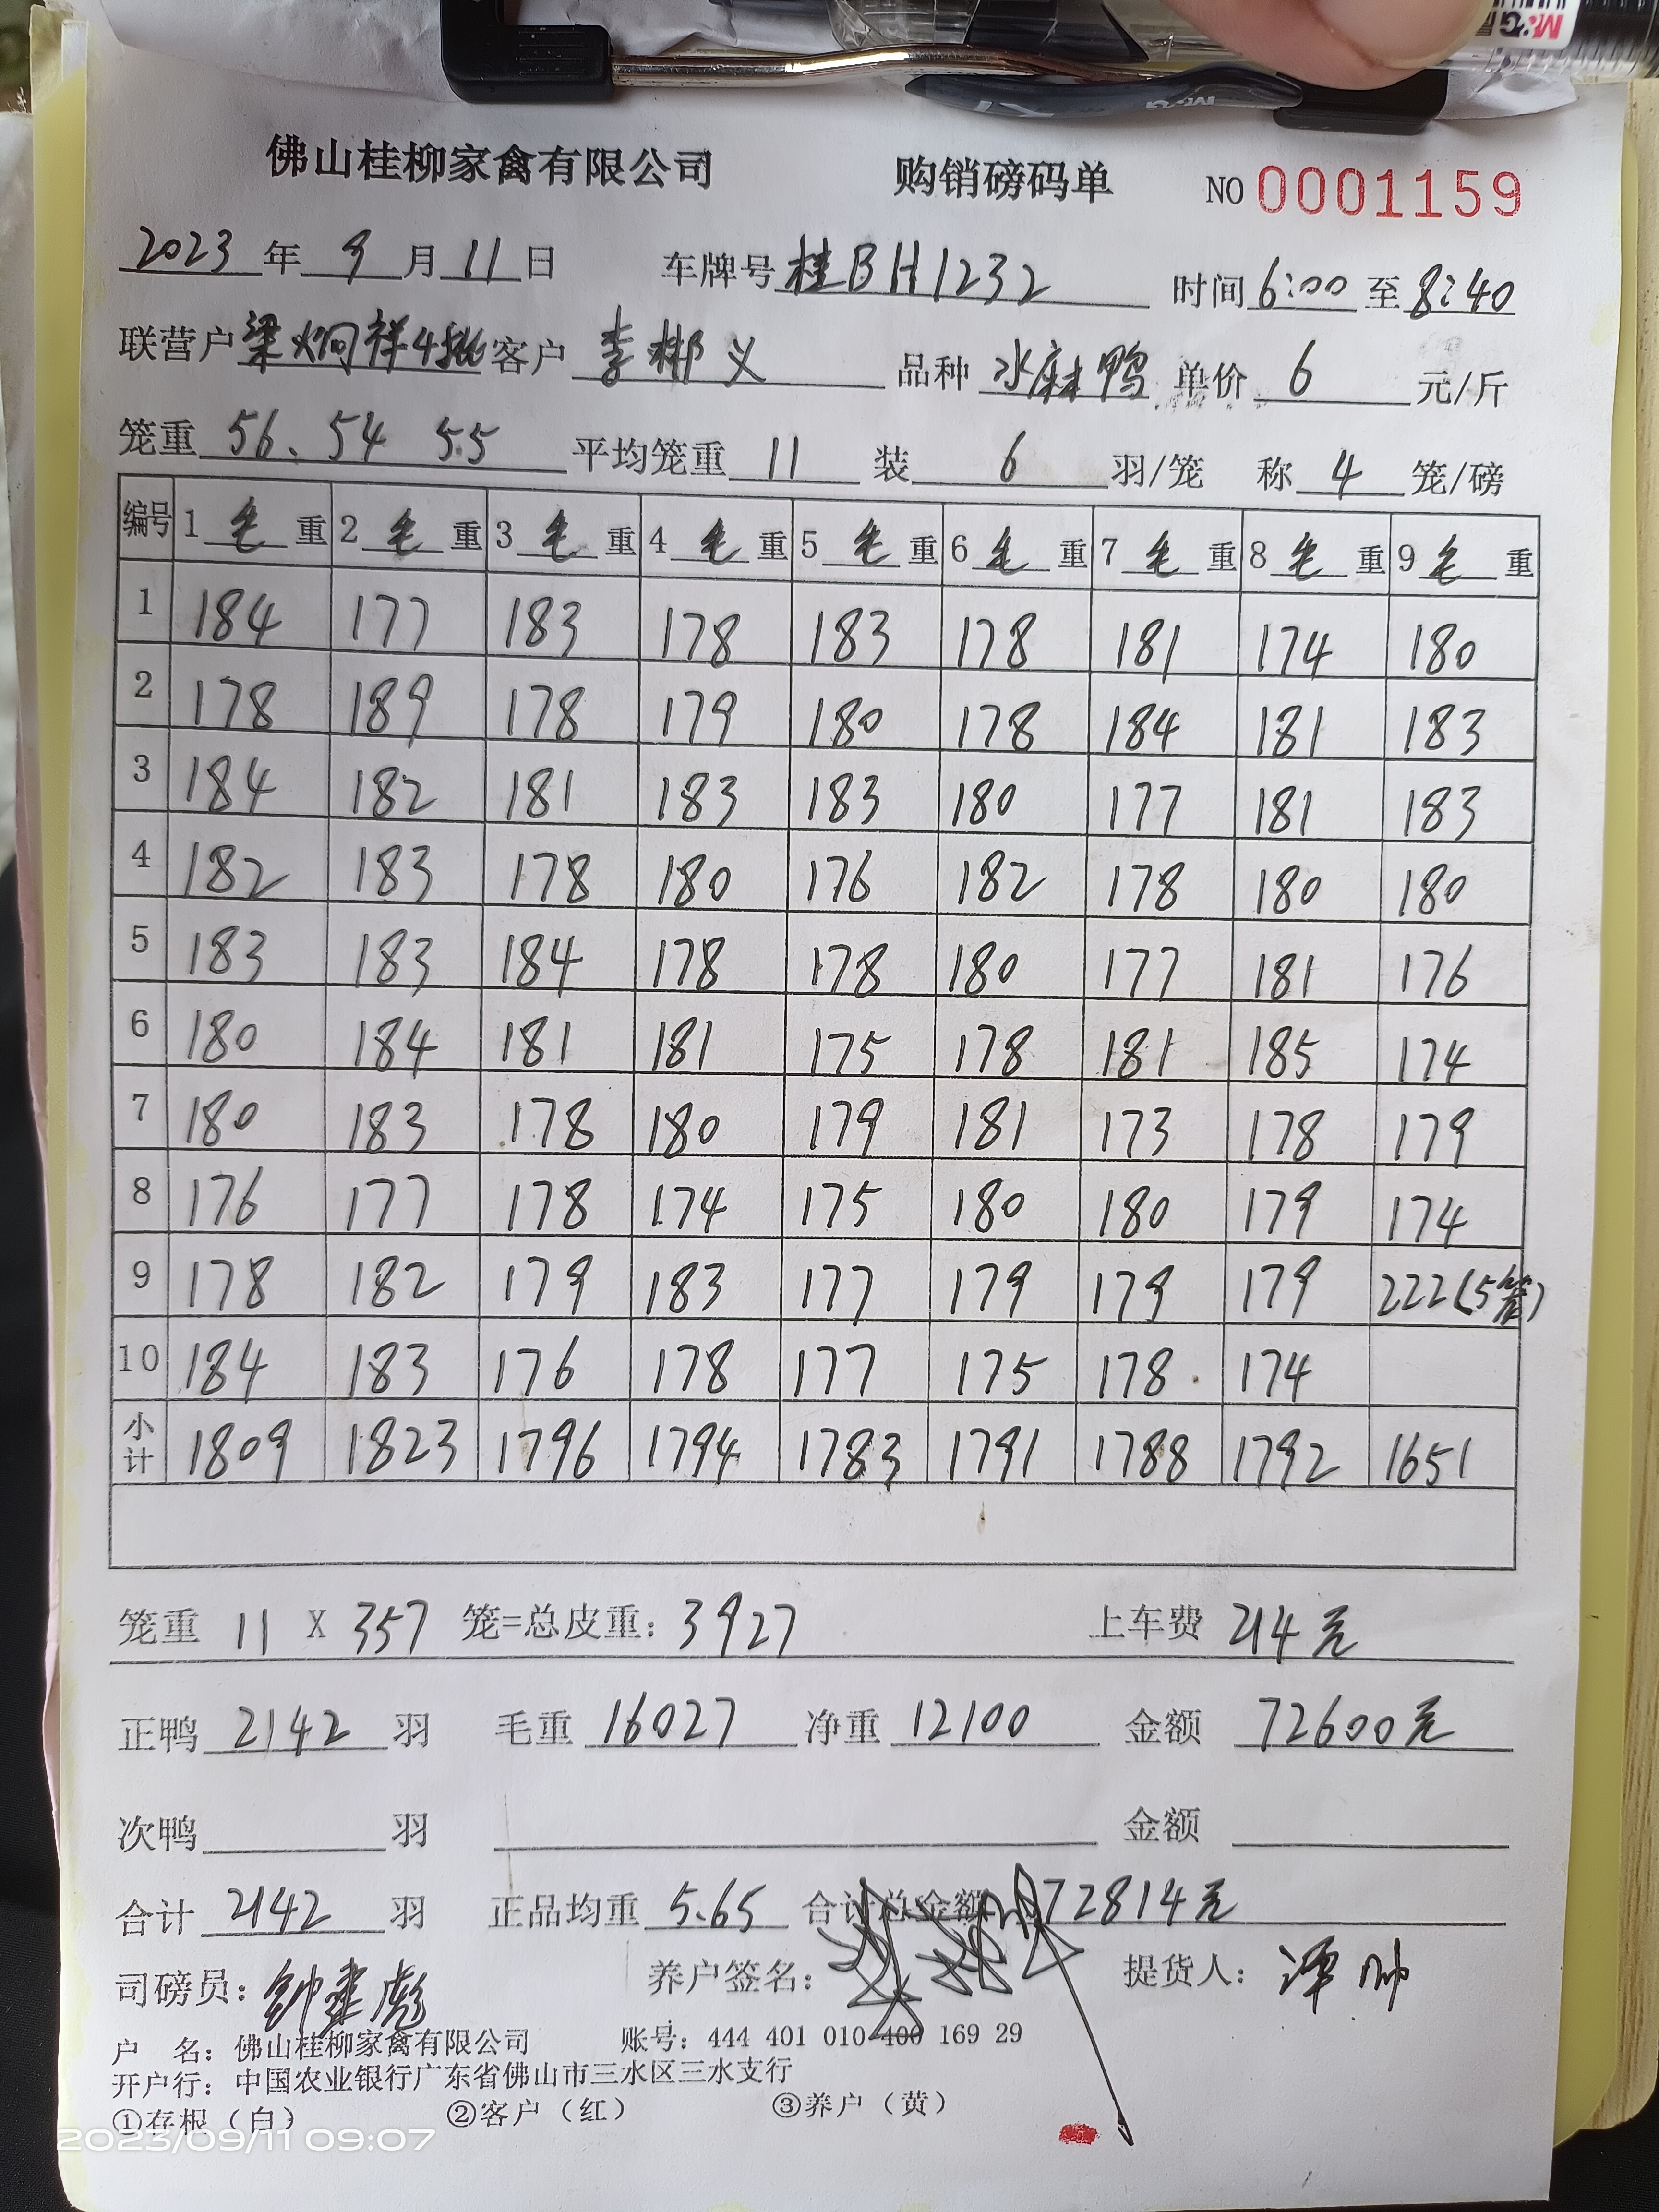 佛山桂柳家禽有限公司 购销磅码单 NO 0001159
2023年9月11日 车牌号桂BH1232 时间6:00至8:40
联营户梁炯祥4批客户李彬义 品种水麻鸭 单价6元/斤
笼重56、54 55 平均笼重11 装6羽/笼 称4笼/磅
编号 1毛重 2毛重 3毛重 4毛重 5毛重 6毛重 7毛重 8毛重 9毛重
1 184 177 183 178 183 178 181 174 180
2 178 189 178 179 180 178 184 181 183
3 184 182 181 183 183 180 177 181 183
4 182 183 178 180 176 182 178 180 180
5 183 183 184 178 178 180 177 181 176
6 180 184 181 181 175 178 181 185 174
7 180 183 178 180 179 181 173 178 179
8 176 177 178 174 175 180 180 179 174
9 178 182 179 183 177 179 179 179 222(5笼)
10 184 183 176 178 177 175 178 174
小计 1809 1823 1796 1794 1783 1791 1788 1792 1651
笼重 11 X 357 笼=总皮重：3927 上车费 214元
正鸭2142羽 毛重16027 净重12100 金额 72600元
次鸭 羽 金额
合计2142羽 正品均重5.65 合计总金额72814元
司磅员：钟建彪 养户签名： 提货人：
户 名：佛山桂柳家禽有限公司 账号：444 401 010 400 169 29
开户行：中国农业银行广东省佛山市三水区三水支行
①存根（白） ②客户（红） ③养户（黄）
2023/09/11 09:07